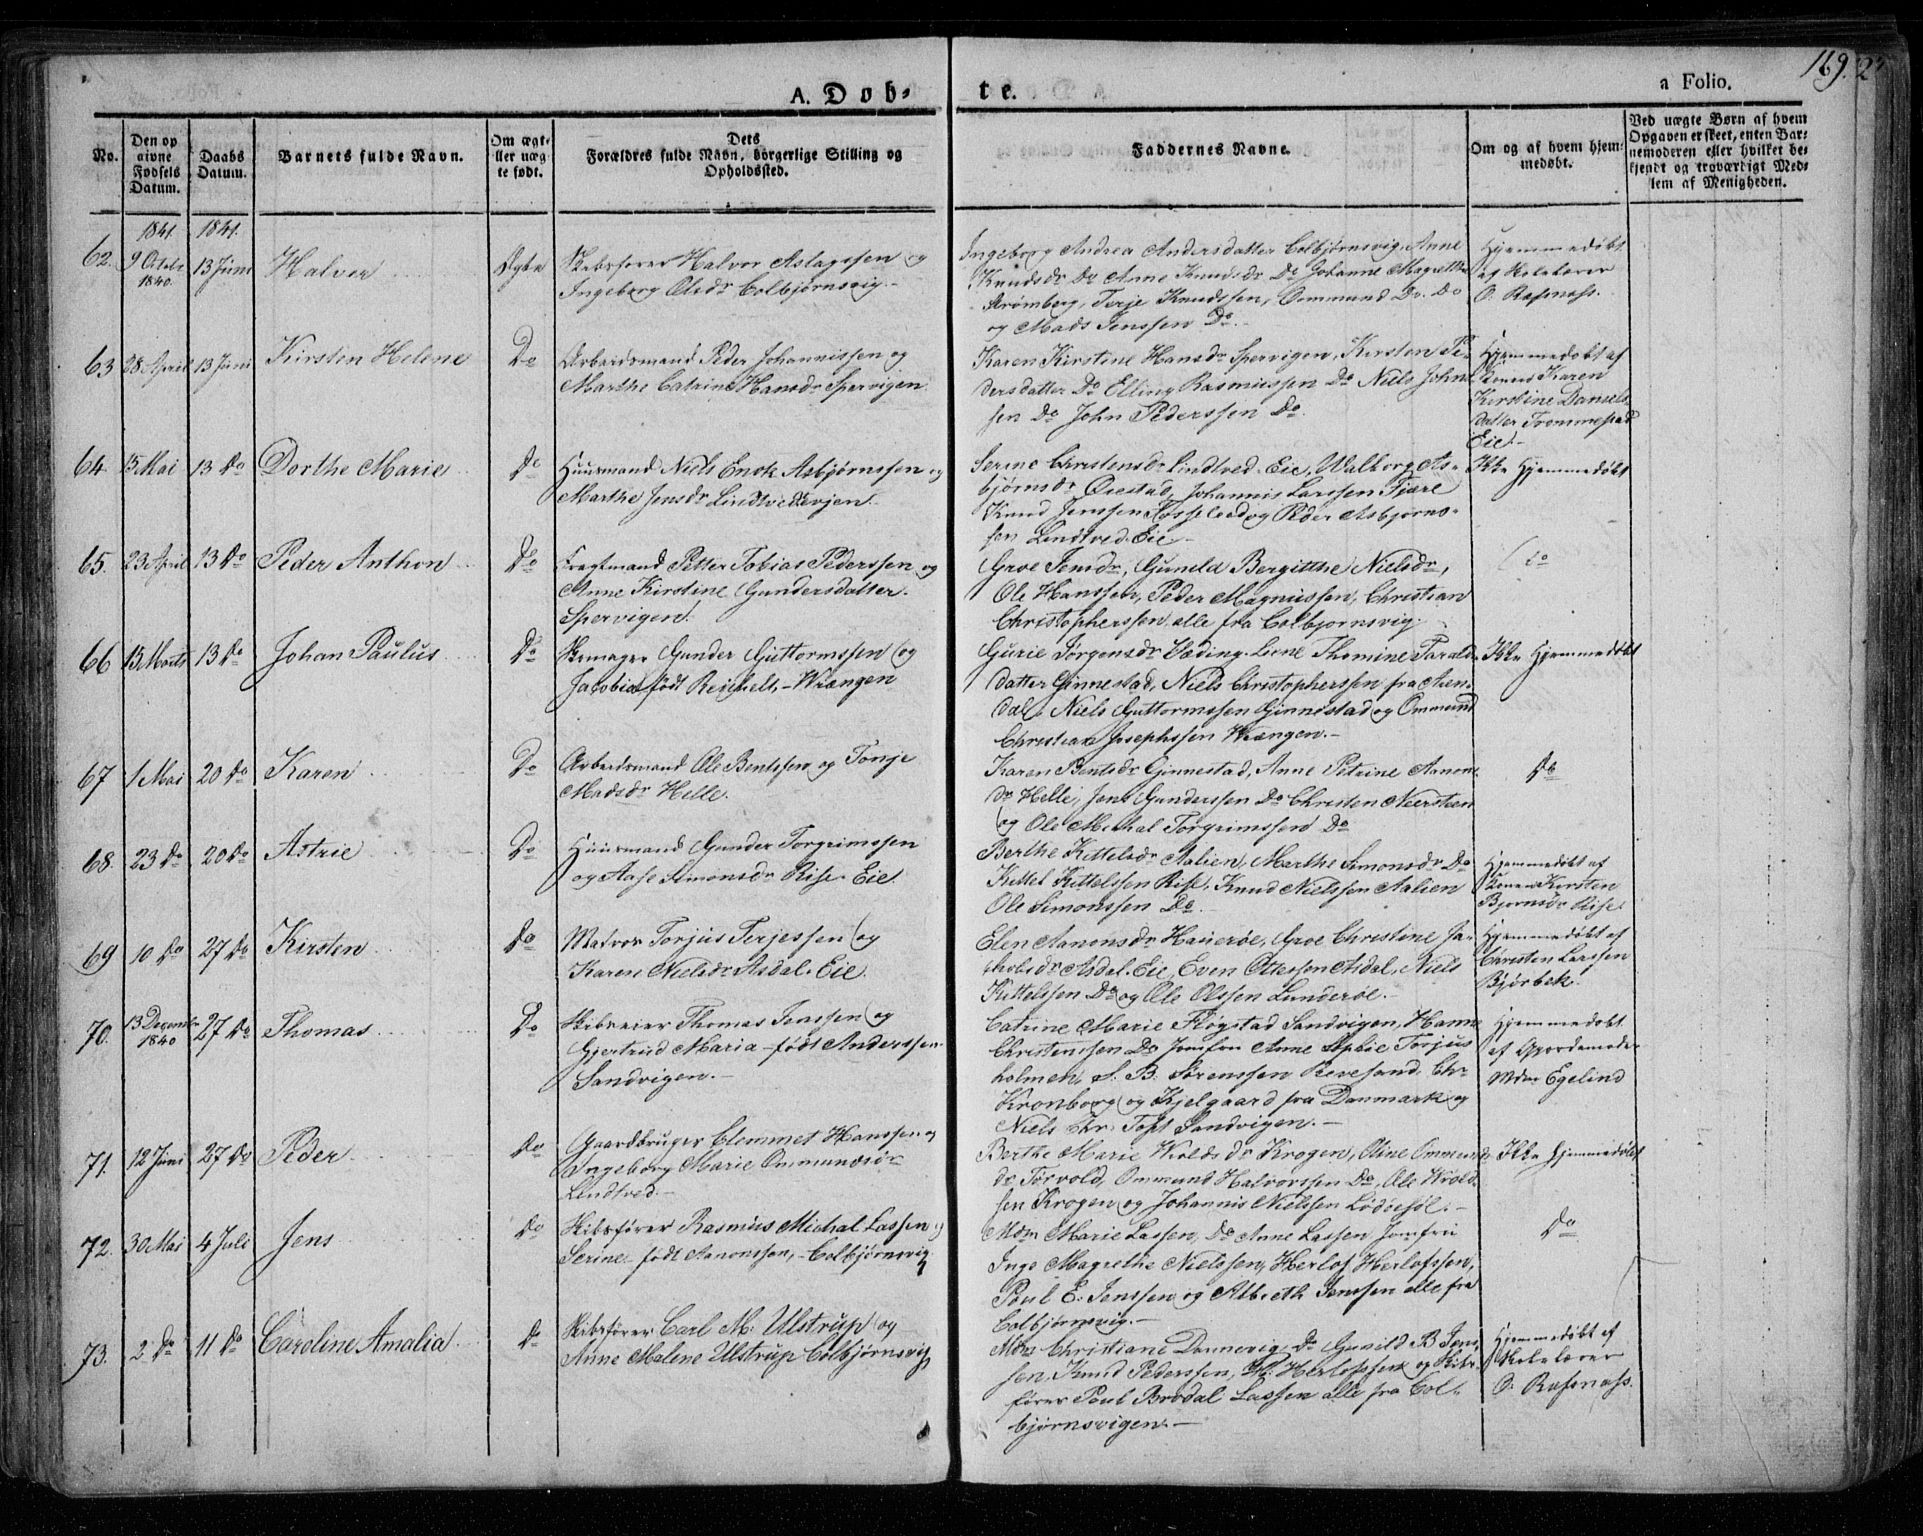 169.
A. Døb-
te.
a Folio.
No.
Den opgivne Fødsels Datum.
Daabs Datum.
Barnets fulde Navn.
Om ægteller uægte født.
Dets Forældres fulde Navn, borgerlige Stilling og Opholdssted.
Faddernes Navne.
Om og af hvem hjemmedøbt.
Ved uægte Børn af hvem Opgaven er skeet, enten Barnemoderen eller hvilket bekjendt og troværdigt Medlem af Menigheden.
1841. 1841.
62. 9 Octobr 1840. 13 Juni Halvor Ægte
Skibsfører Halvor Aslagssen og
Ingeborg Olsdr Colbjørnsvig.-
Ingeborg Andrea Andersdatter Colbjørnsvig, Anne
Knudsdr Do Anne Knudsdr Do Johanne Magrethe
Strømberg, Terje Knudssen, Ommund Do. Do
og Mads Jenssen Do.-
Hjemmedøbt
af Skolelærer
O. Rafsnass.
63 28 April 13 Juni Kirsten Helene Do
Arbeidsmand Peder Johannissen og
Marthe Catrine Hansdr Spervigen
Karen Kirstine Hansdr Spervigen, Kirsten Pe-
dersdatter Do Elling Rasmussen Do Niels John-
sen Do John Pederssen Do.
Hjemmedøbt af
Konen Karen
Kirstine Daniels-
datter Trommestad
Eie.-
64. 15 Mai 13 Do Dorthe Marie Do
Huusmand Niels Enok Asbjørnssen og
Marthe Jensdr Lindtvedteien.
Serine Christensdr Lindtved-Eie, Walborg As-
bjørnsdr Øiestad, Johannis Larssen Fjære
Knud Jenssen Løsseleed og Peder Asbjørns-
sen Lindtved-Eie.-
Ikke Hjemmedøbt
65. 23 April 13 Do Peder Anthon Do
Fragtmand Petter Tobias Pederssen og
Anne Kirstine Gundersdatter.
Spervigen.
Groe Jensdr, Gunild Bergitthe Nielsdr,
Ole Hanssen, Peder Magnussen, Christian
Christopherssen, alle fra Colbjørnsvig.
Do
66 15 Marts 13 Do Johan Paulus Do
Skomager Gunder Guttormssen og
Jacobia født Reichelt,- Wrængen
Gurie Jørgensdr Væding, Lene Thomine Tarald-
datter Ginnestad, Niels Christopherssen fra Aren-
dal, Niels Guttormssen Ginnestad og Ommund
Christian Josephssen Wrængen.-
Ikke Hjemmedøbt
67 1 Mai 20 Do Karen Do
Arbeidsmand Ole Bentssen og Tonje
Madsdr Helle.
Karen Bentsdr Ginnestad, Anne Petrine Aanons-
dr Helle, Jens Gunderssen Do Christen Neersteen
og Ole Michal Torgrimssen Do
Do
68. 23 Do 20 Do Astrie Do
Huusmand Gunder Torgrimssen
og Aase Simonsdr Rise-Eie.
Berthe Kittelsdr Aalien, Marthe Simonsdr Do
Kittel Kittelssen Rise, Knud Nielssen Aalien
Ole Simonssen Do.
Hjemmedøbt af
Konen Kirsten
Bjørnsdr Rise
69 10 Do 27 Do Kirsten Do
Matros Torjus Terjessen og
Karen Nielsdr Asdal-Eie.
Elen Aanonsdr Hauerøe, Groe Christine Ja-
kobsdr Asdal-Eie, Even Ottessen Asdal, Niels
Kittelssen Do og Ole Olssen Lunderøe.-
Hjemmedøbt af
Christen Larssen
Bjørbek.
70. 13 Decembr 1840 27 Do Thomas Do
Skibseier Thomas Jenssen og
Gjertrud Maria - født Anderssen
Sandvigen.-
Catrine Marie Fløgstad Sandvigen, Hanne
Christenssen Do Jomfru Anne Sophie Torjus
holmen, S. B. Sørenssen Revesand, Chr
Kronborg og Kjelgaard fra Danmark og
Niels Chr. Toft Sandvigen.-
Hjemmedøbt
af Gjordemoder
Mdm Egelind
71. 12 Juni 27 Do Peder Do
Gaardbruger Clemmet Hanssen og
Ingeborg Marie Ommundsdr
Lindtved.-
Berthe Marie Wroldsdr Krogen, Oline Ommunds
dr Torvold, Ommund Halvorssen Do, Ole Wrold-
sen Krogen og Johannis Nielssen Lødøesøl.-
Ikke Hjemmedøbt
72. 30 Mai 4 Juli Jens Do
Skibsfører Rasmus Michal Lassen og
Serine født Aanonssen,- Colbjørnsvig
Mdm Marie Lassen, Do Anne Lassen Jomfru
Inge Magrethe Nielssen, Herlof Herlofssen,
Poul E. Jenssen og Albreth Jenssen alle fra
Colbjørnsvig.-
Do
73. 2 Do 11 Do Caroline Amalia Do
Skibsfører Carl M. Ulstrup og
Anne Malene Ulstrup Colbjørnsvig
Mdm Christiane Dannevig, Do Gunild B Jens-
sen, Knud Pederssen, H. Herlofssen og Skibs-
fører Poul Brodal Lassen alle fra Col-
bjørnsvigen.-
Hjemmedøbt af
Skolelærer
O. Rafsnass.